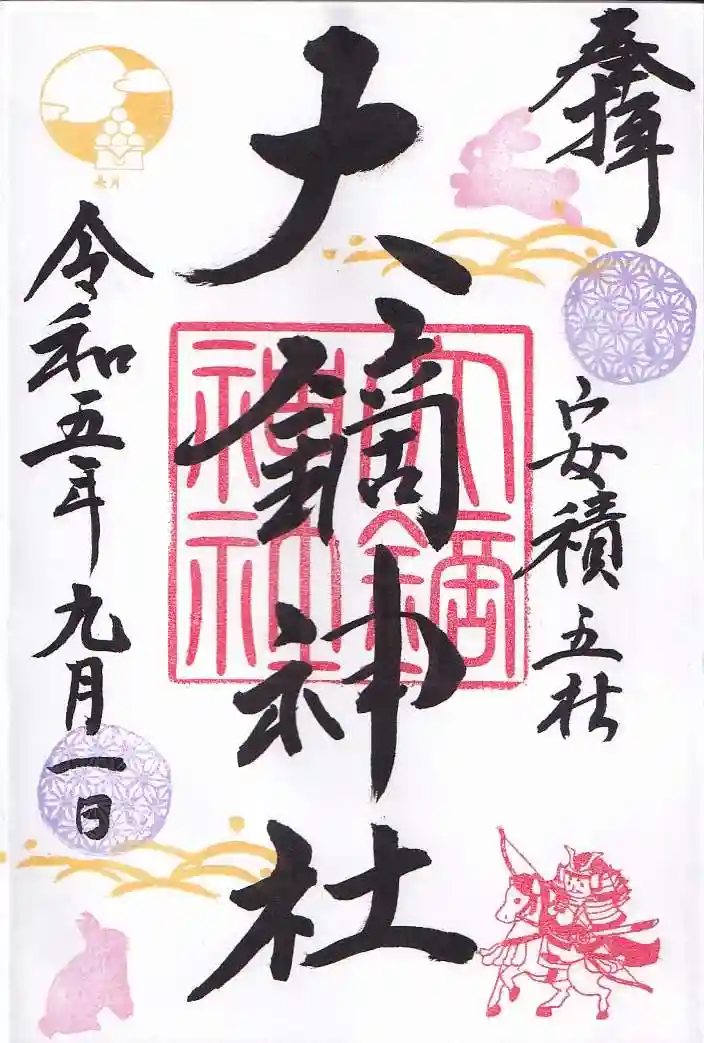 奉拝
安積五社
大鏑神社
大鏑神社
令和五年九月一日
長月